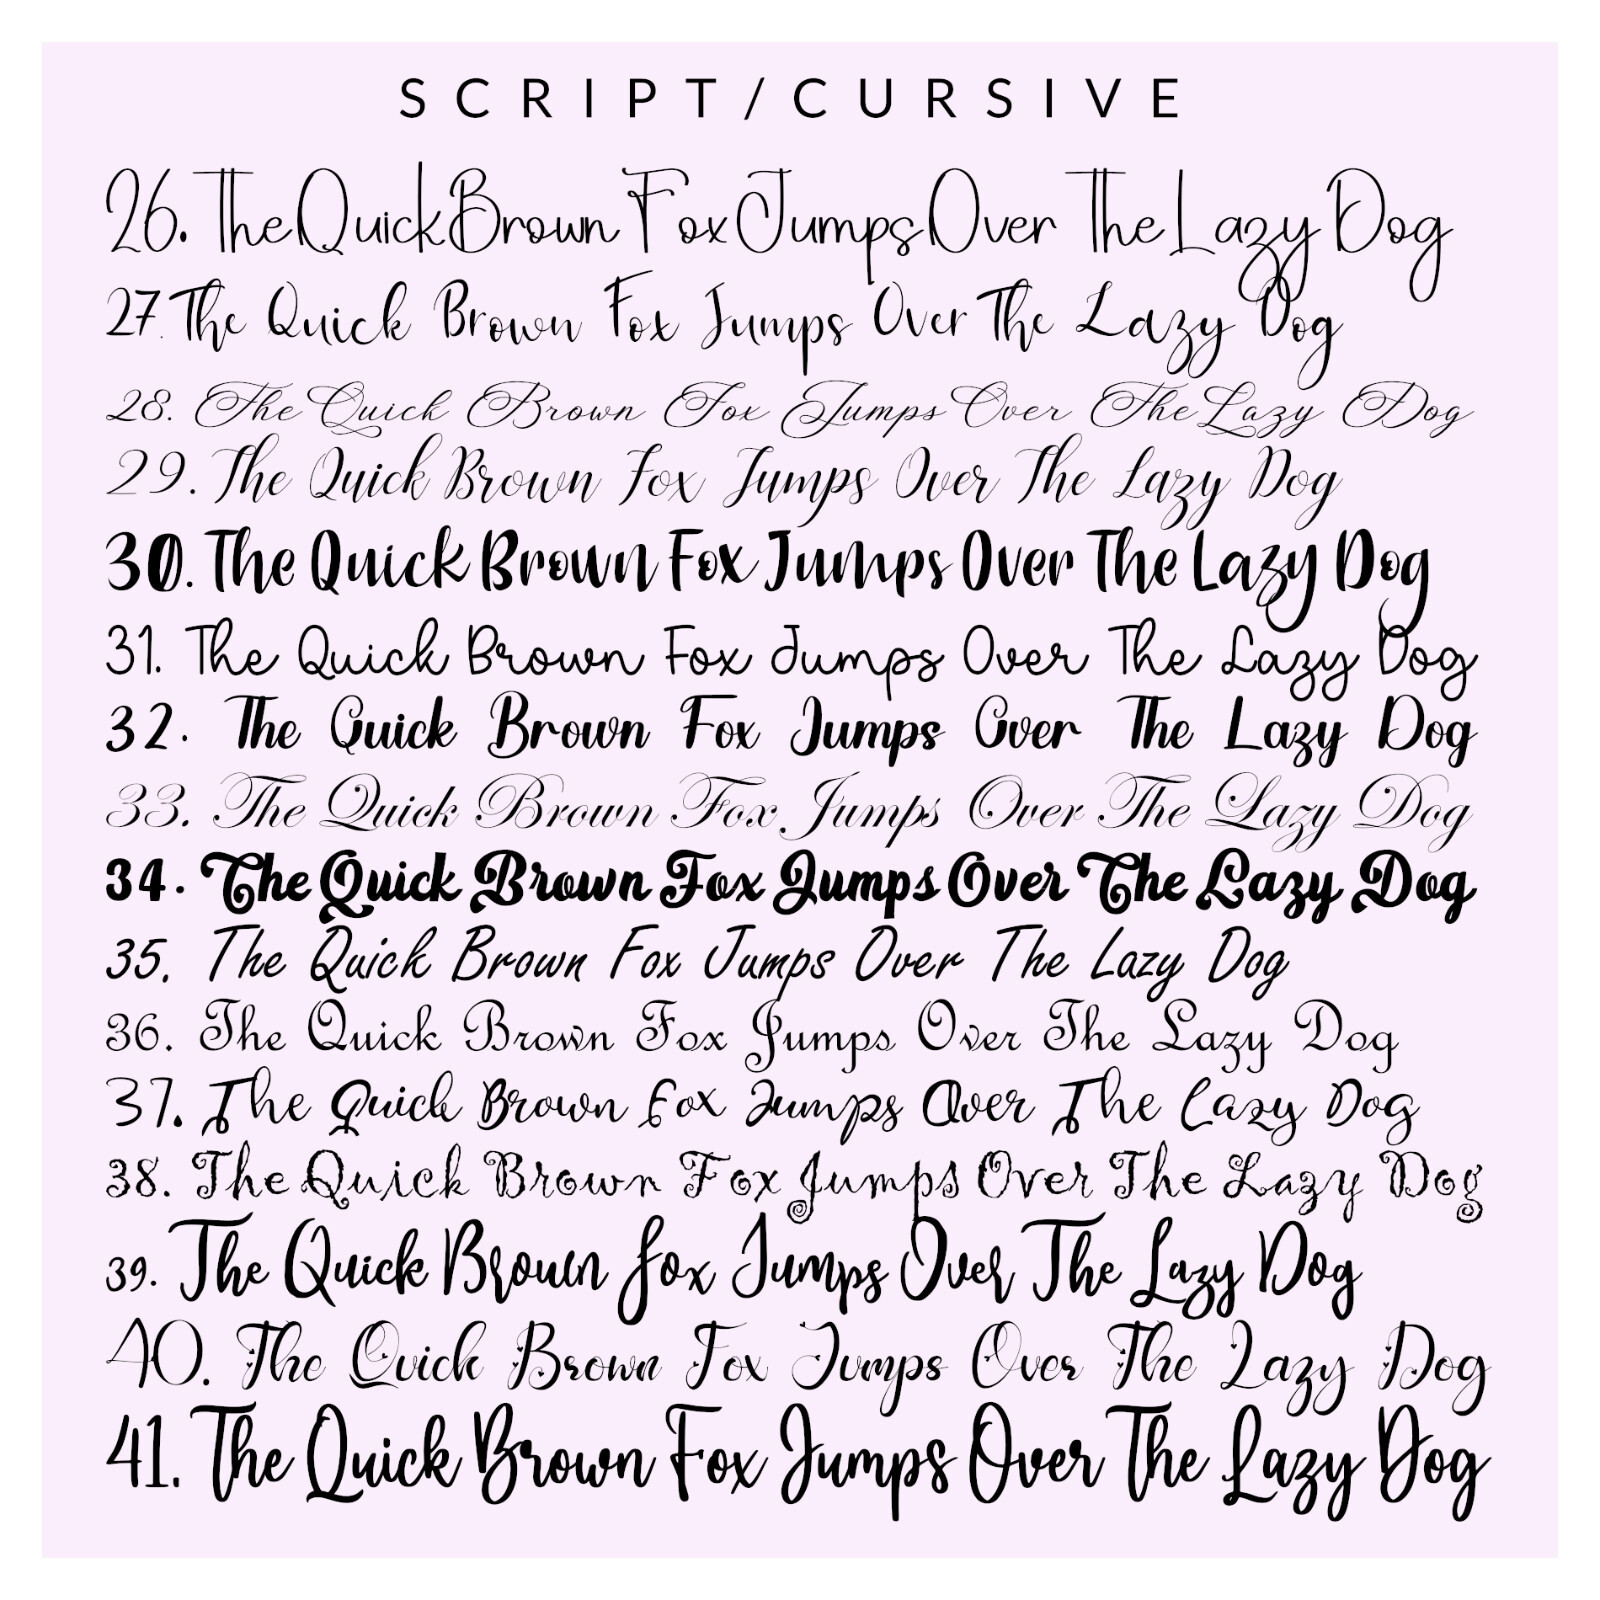 SCRIPT/CURSIVE
26. The Quick Brown Fox Jumps Over The Lazy Dog
27. The Quick Brown Fox Jumps Over The Lazy Dog
28. The Quick Brown Fox Jumps Over The Lazy Dog
29. The Quick Brown Fox Jumps Over The Lazy Dog
30. The Quick Brown Fox Jumps Over The Lazy Dog
31. The Quick Brown Fox Jumps Over The Lazy Dog
32. The Quick Brown Fox Jumps Over The Lazy Dog
33. The Quick Brown Fox Jumps Over The Lazy Dog
34. The Quick Brown Fox Jumps Over The Lazy Dog
35. The Quick Brown Fox Jumps Over The Lazy Dog
36. The Quick Brown Fox Jumps Over The Lazy Dog
37. The Quick Brown Fox Jumps Over The Lazy Dog
38. The Quick Brown Fox Jumps Over The Lazy Dog
39. The Quick Brown Fox Jumps Over The Lazy Dog
40. The Quick Brown Fox Jumps Over The Lazy Dog
41. The Quick Brown Fox Jumps Over The Lazy Dog